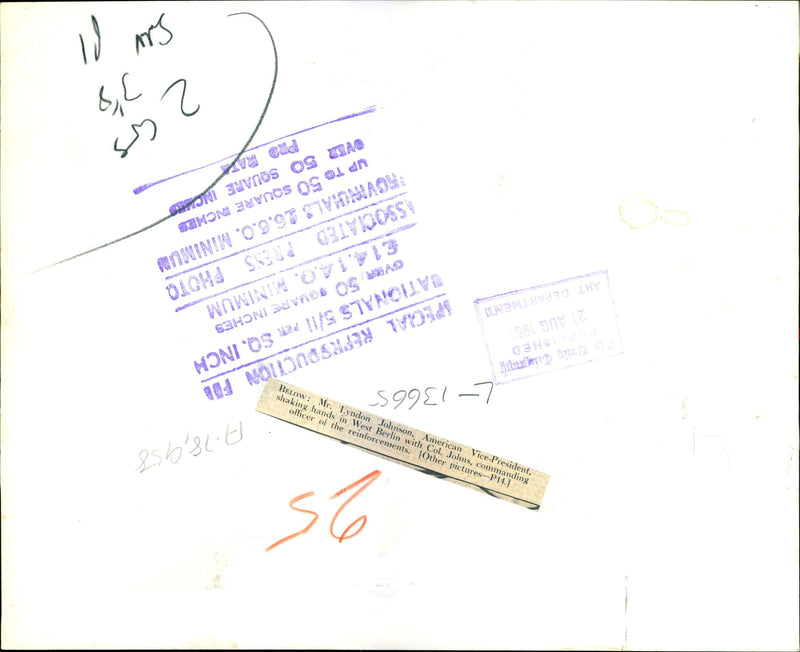 BELOW: Mr. Lyndon Johnson, American Vice-President,
shaking hands in West Berlin with Col. Johns, commanding
officer of the reinforcements. [Other pictures—P14.]
SPECIAL REPRODUCTION FEE
NATIONALS 5/11 PER SQ. INCH
OVER 50 SQUARE INCHES
£14.14.0. MINIMUM
ASSOCIATED PRESS PHOTO
PROVINCIALS £6.6.0. MINIMUM
UP TO 50 SQUARE INCHES
OVER 50 SQUARE INCHES
PRO RATA
The Daily Telegraph
PUBLISHED
21 AUG
ART DEPARTMENT
L-13665
A-78,958